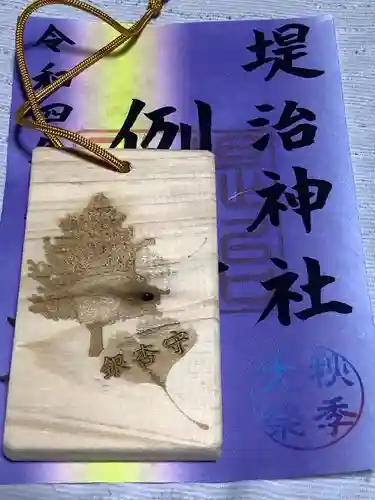 堤治神社
例
令和
銀杏守
秋季
大祭